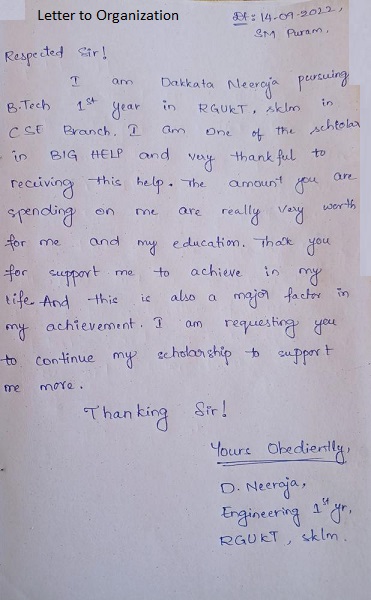 Letter to Organization
Dt: 14-09-2022,
SM Puram.
Respected Sir!
I am Dakkata Neeraja pursuing
B.Tech 1st year in RGUKT, sklm in
CSE Branch. I am one of the scholar
in BIG HELP and very thankful to
receiving this help. The amount you are
spending on me are really very worth
for me and my education. Thank you
for support me to achieve in my
life. And this is also a major factor in
my achievement. I am requesting you
to continue my scholarship to support
me more.
Thanking Sir!
Yours Obediently,
D. Neeraja,
Engineering 1st yr,
RGUKT, sklm.